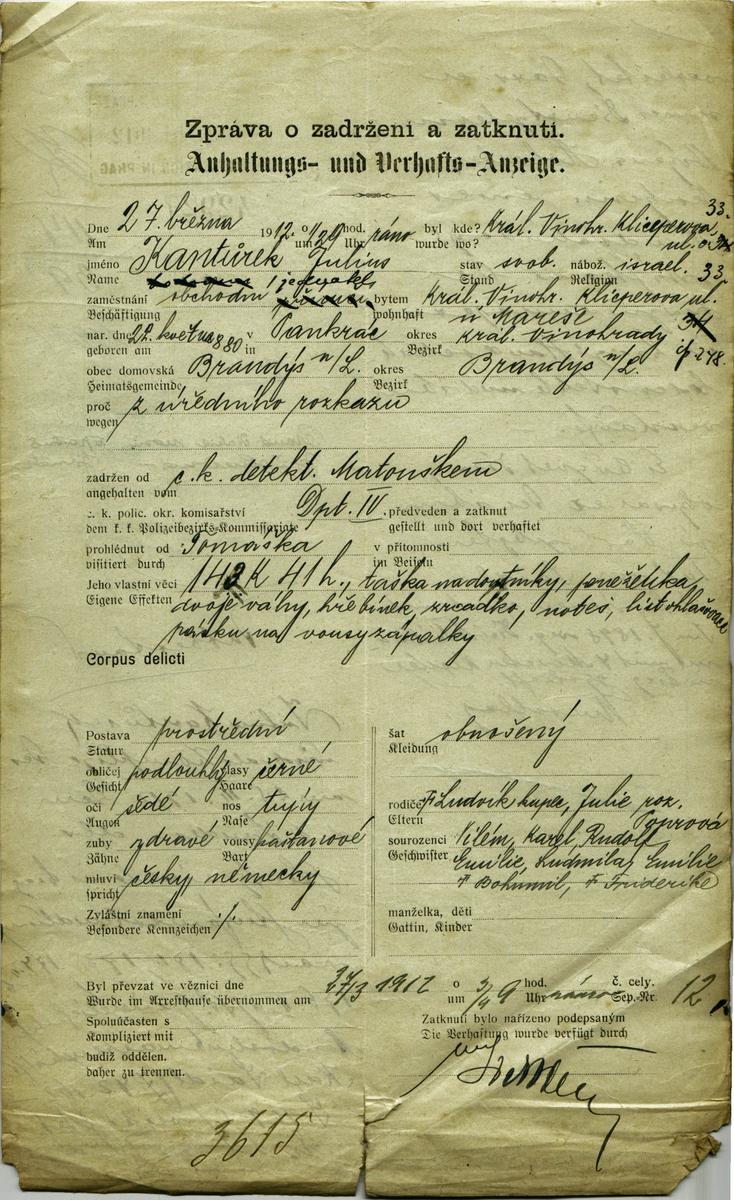 Zpráva o zadržení a zatknutí.
Anhaltungs- und Verhafts-Anzeige.
Dne 27. března 1912. o 1/2 9 hod. ráno byl kde? Král. Vinohr. Klicperova 33.
Am um Uhr wurde wo? ul.
jméno Kantůrek Julius stav svob. nábož. israel.
Name Stand Religion 33
zaměstnání obchodní jednatel bytem Král. Vinohr. Klicperova ul.
Beschäftigung wohnhaft u Mareše
nar. dne 22. května 880 v Pankrác okres Král. Vinohrady
geboren am in Bezirk čp 248.
obec domovská Brandýs n/L. okres Brandýs n/L.
Heimatsgemeinde Bezirk
proč z úředního rozkazu
wegen
zadržen od c. k. detekt. Matouškem
angehalten vom
c. k. polic. okr. komisařství Dpt. IV. předveden a zatknut
dem k. k. Polizeibezirks-Kommissariate gestellt und dort verhaftet
prohlédnut od Tomáška v přítomnosti
visitiert durch im Beisein
Jeho vlastní věci 142 K 41 h., taška na doutníky, peněženka,
Eigene Effekten dvoje váhy, hřebínek, zrcadko, notes, list ohlašovací
pásku na vousy zápalky
Corpus delicti
Postava prostřední šat obnošený
Statur Kleidung
obličej podlouhlý vlasy černé
Gesicht Haare
oči šedé nos tupý rodiče Ludvík kupec, Julie roz.
Augen Nase Eltern
zuby zdravé vousy kaštanové sourozenci Vilém, Karel, Rudolf
Zähne Bart Geschwister Emilie, Ludmila, Emilie
mluví česky, německy † Bohumil, † Friderike
spricht
Zvláštní znamení ./. manželka, děti
Besondere Kennzeichen Gattin, Kinder
Byl převzat ve věznici dne 27/3 1912 o 3/4 9 hod. ráno č. cely. 12
Wurde im Arresthause übernommen am um Uhr Sep.-Nr.
Spoluúčasten s Zatknutí bylo nařízeno podepsaným
Kompliziert mit Die Verhaftung wurde verfügt durch
budiž oddělen.
daher zu trennen.
3615